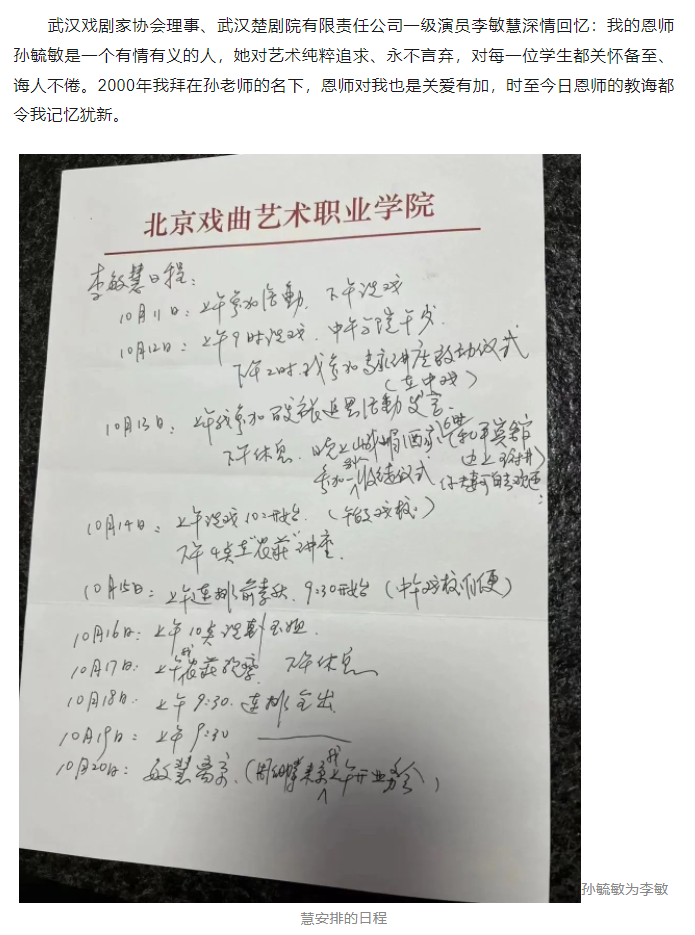 武汉戏剧家协会理事、武汉楚剧院有限责任公司一级演员李敏慧深情回忆：我的恩师
孙毓敏是一个有情有义的人，她对艺术纯粹追求、永不言弃，对每一位学生都关怀备至、
诲人不倦。2000年我拜在孙老师的名下，恩师对我也是关爱有加，时至今日恩师的教诲都
令我记忆犹新。
北京戏曲艺术职业学院
李敏慧日程：
10月11日：上午参加活動．下午说戏
10月12日：上午9时说戏．中午
下午2时．我参加专家讲座启动仪式
（在中戏）
10月13日：上午我参加追思活動发言．
下午休息．晚上
参加一收徒仪式
10月14日：上午说戏10:00开始．
下午4点在"农莊"讲座．
10月15日：上午连排 9:30开始（中午戏校有便）
10月16日：上午10点说
10月17日：上午我农莊 下午休息
10月18日：上午9:30．连排全出
10月19日：上午9:30
10月20日：敏慧离京．（
孙毓敏为李敏
慧安排的日程